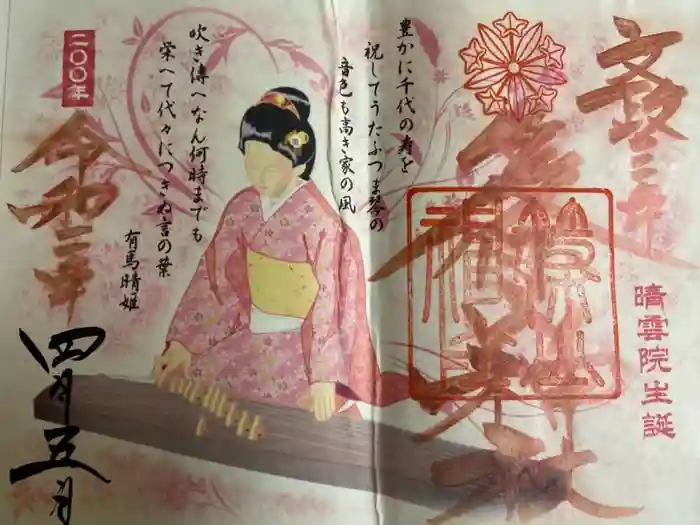 文政三年
晴雲院生誕
豊かに千代の寿を
祝してうたふつま琴の
音色も高き家の風
吹き傳へなん何時までも
栄へて代々につきぬ言の葉
有馬晴姫
二〇〇年
令和三年
四月五月